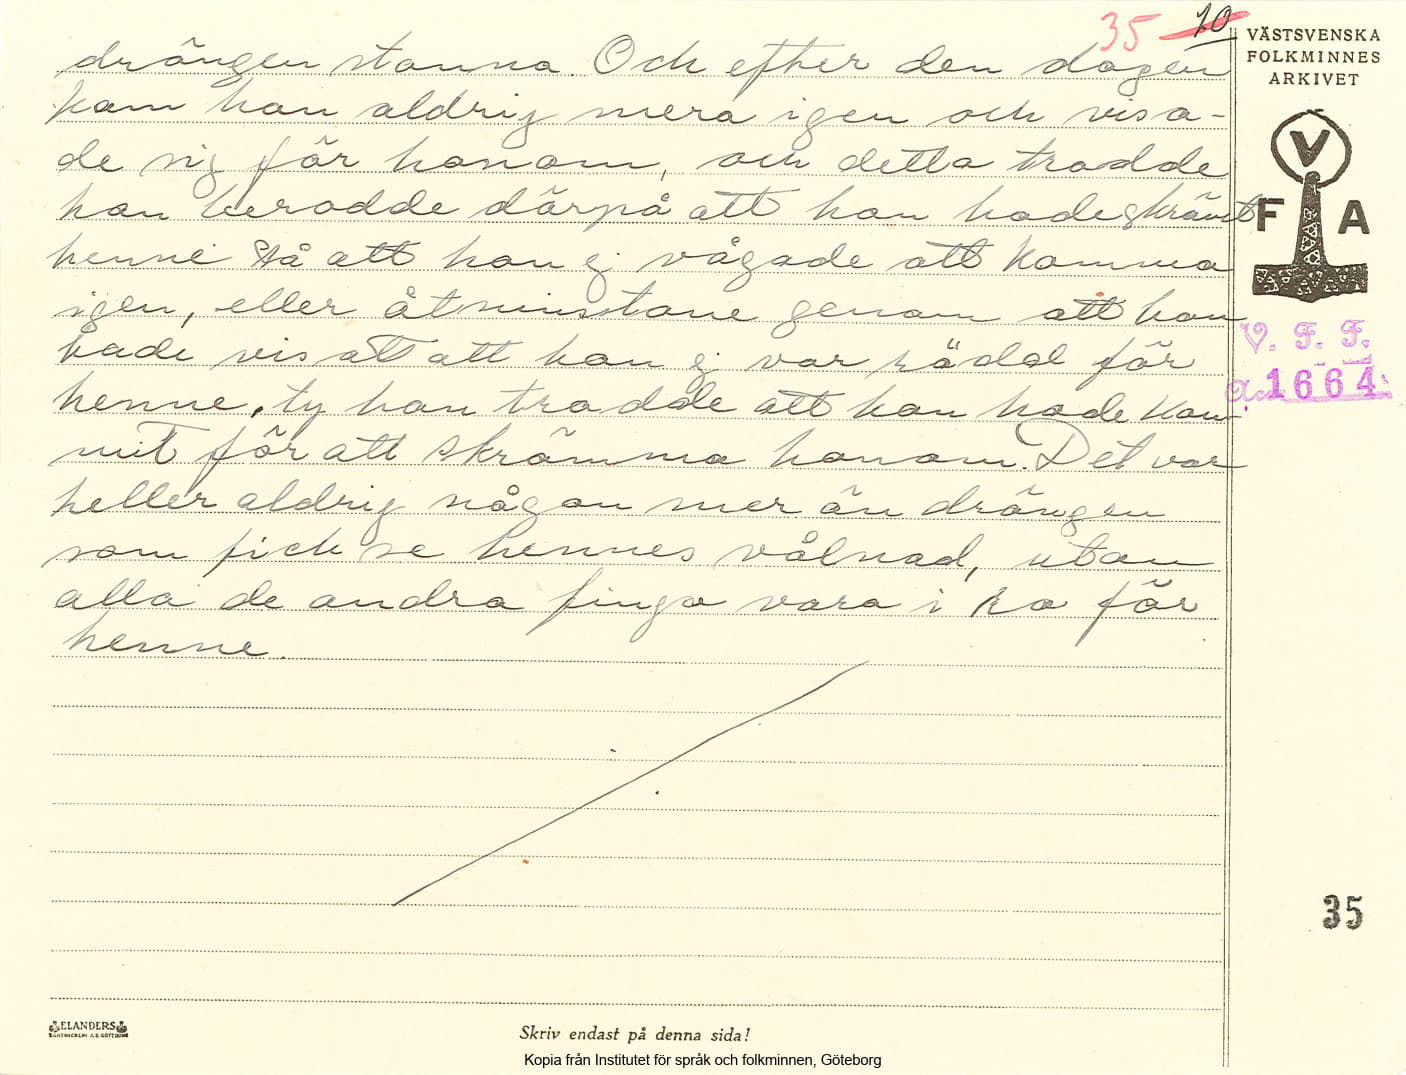 35 10
drängen stanna. Och efter den dagen
kom hon aldrig mera igen och visa-
de sig för honom, och detta trodde
han berodde därpå att han hade skrämt
henne så att hon ej vågade att komma
igen, eller åtminstone genom att han
hade visat att han ej var rädd för
henne, ty han trodde att hon hade kom-
mit för att skrämma honom. Det var
heller aldrig någon mer än drängen
som fick se hennes vålnad, utan
alla de andra fingo vara i ro för
henne.
VÄSTSVENSKA
FOLKMINNES
ARKIVET
V
F A
V. F. F.
1664
35
ELANDERS
Skriv endast på denna sida!
Kopia från Institutet för språk och folkminnen, Göteborg